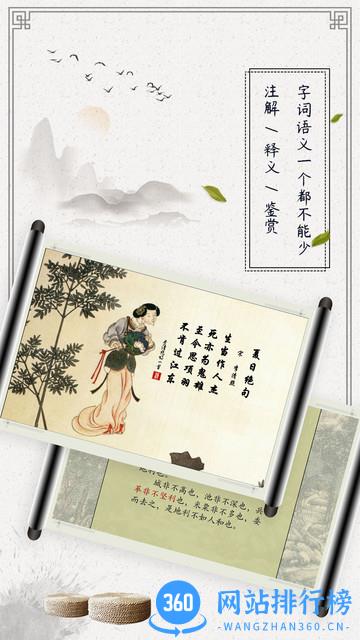 字词语义一个都不能少
注解/释义/鉴赏
夏日绝句
宋 李清照
生当作人杰
死亦为鬼雄
至今思项羽
不肯过江东
地利也。
城非不高也，池非不深也，兵
革非不坚利也，米粟非不多也，委
而去之，是地利不如人和也。
360 网站排行榜
-WANGZHAN360.CN-